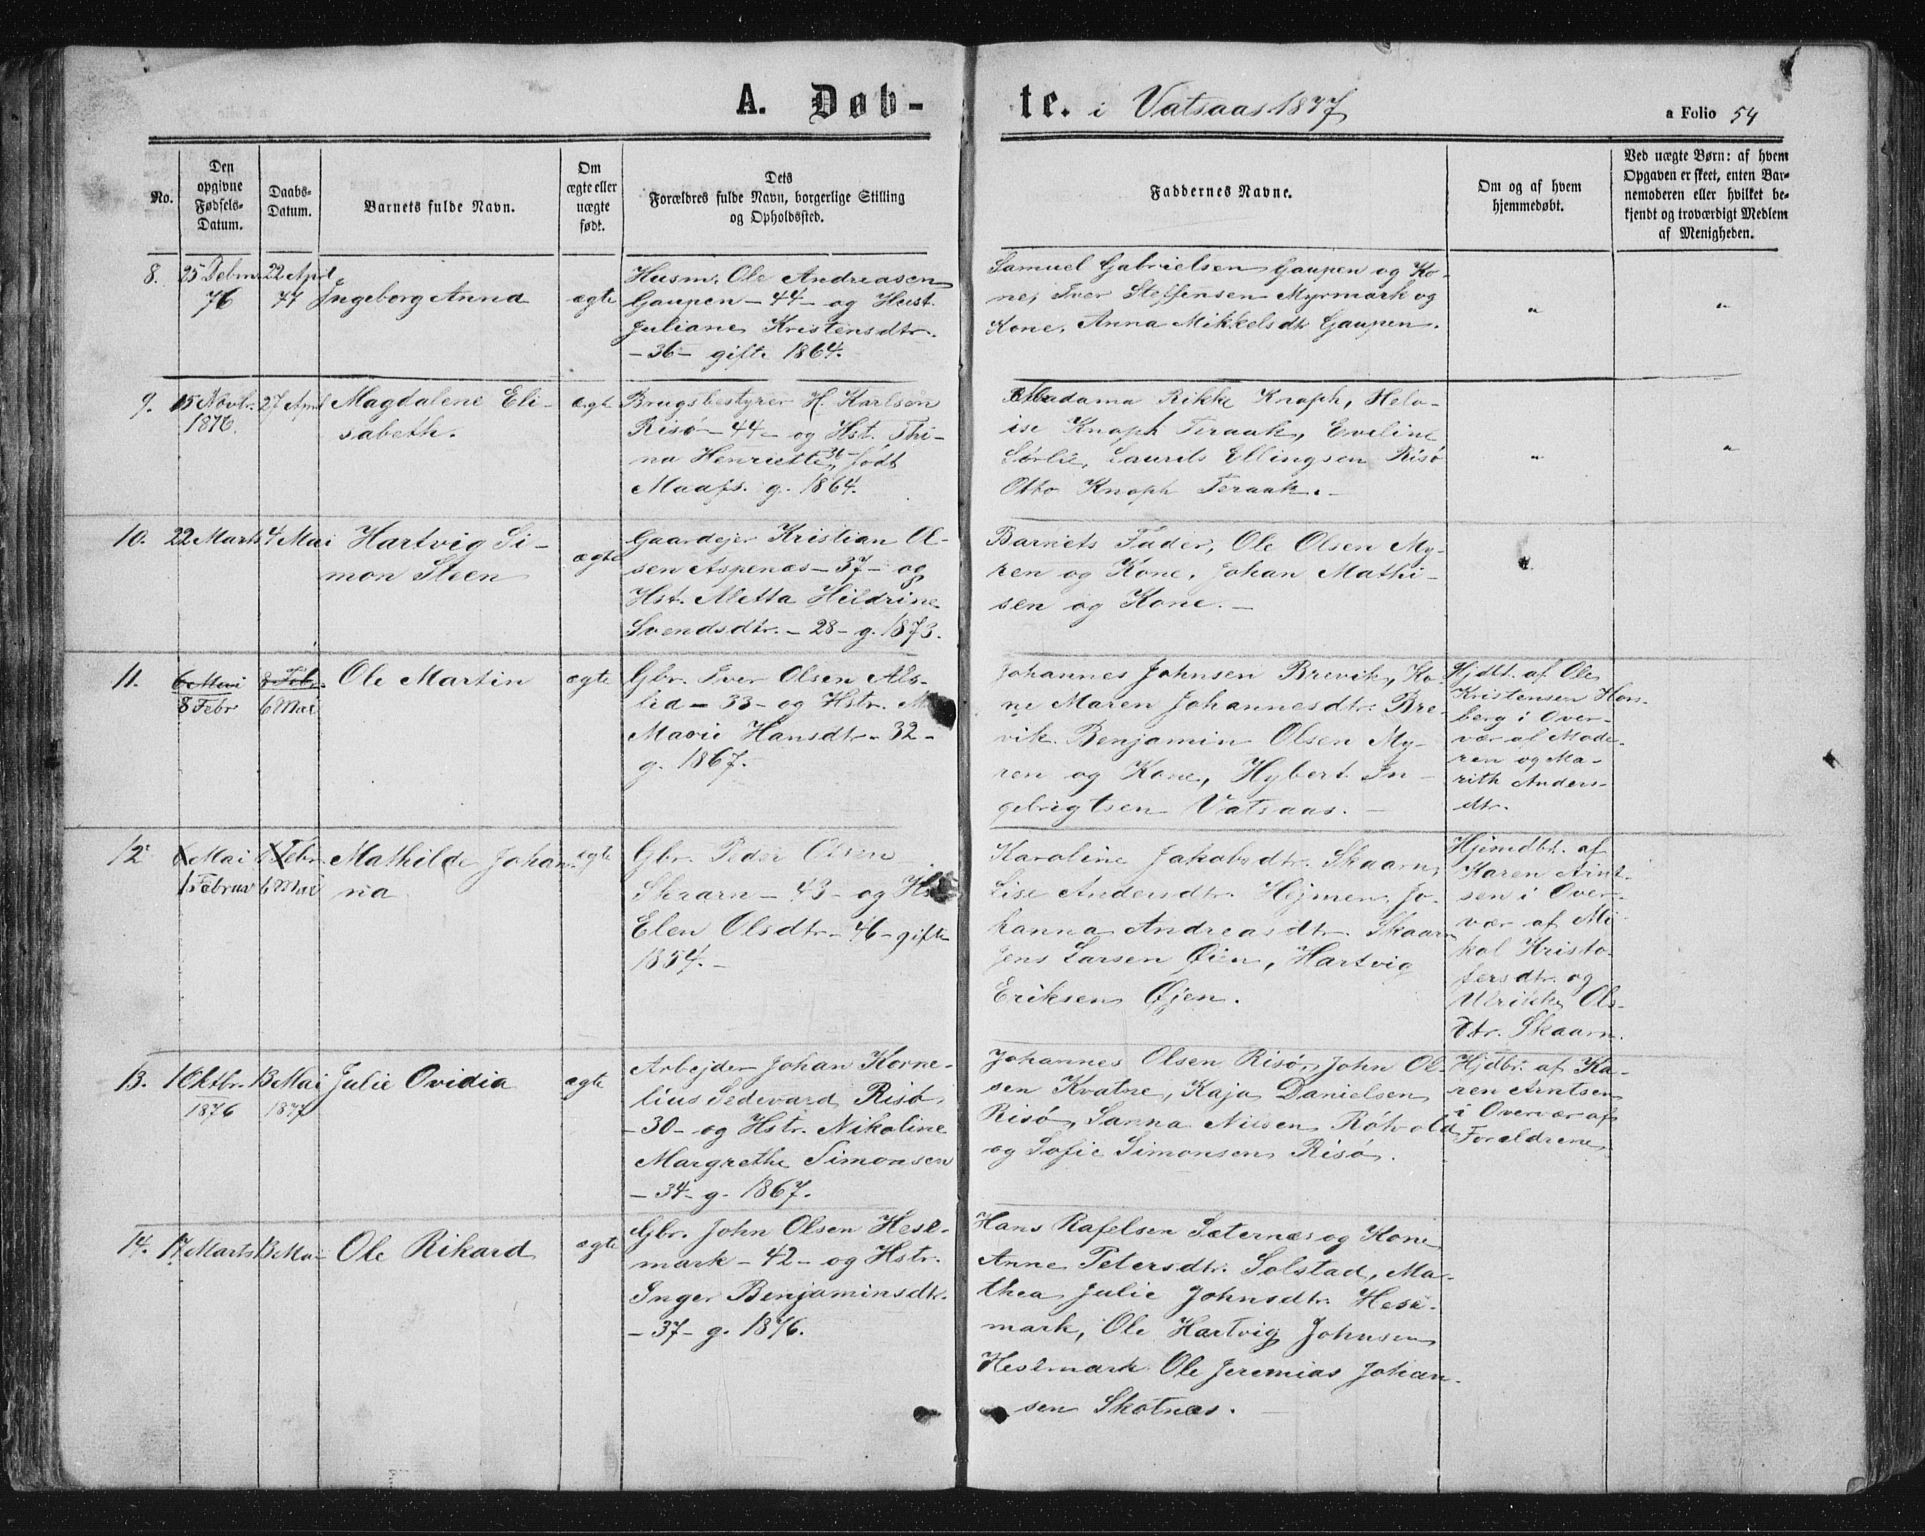 A. Døb-
te. i Vatsaas 1877
a Folio 54
No.
Den
opgivne
Fødsels-
Datum.
Daabs-
Datum.
Barnets fulde Navn.
Om
ægte eller
uægte
født.
Dets
Forældres fulde Navn, borgerlige Stilling
og Opholdssted.
Faddernes Navne.
Om og af hvem
hjemmedøbt.
Ved uægte Børn: af hvem
Opgaven er skeet, enten Bar-
nemoderen eller hvilket be-
kjendt og troværdigt Medlem
af Menigheden.
8.
25 Debm
76
22 April
77
Ingeborg Anna
ægte
Husm. Ole Andreasen
Gaupen - 44 - og Hust.
Juliane Kristensdtr.
- 36 - gifte 1864.
Samuel Gabrielsen Gaupen og Ko-
ne, Iver Steffensen Myrmark og
Kone, Anna Mikkelsdtr Gaupen.
"
"
9.
15 Novbr.
1876.
27 April
Magdalene Eli-
sabeth.
ægte
Brugsbestyrer H. Karlsen
Risø - 44 - og Hst. Thi-
na Henriette, født
Maass. g. 1864.
Madama Rikke Knoph, Helo-
ise Knoph Teraak, Eveline
Sørlie, Laurits Ellingsen Risø
Otto Knoph Teraak. -
"
"
10.
22 Marts
4 Mai
Hartvig Si-
mon Steen
ægte
Gaardejer Kristian Ol-
sen Aspenæs - 37 - og
Hst. Aletta Hildrine
Svendsdtr. - 28 - g. 1873.
Barnets Fader, Ole Olsen My-
ren og Kone, Johan Mathi-
sen og Kone. -
"
11.
6 Mai
8 Febr
8 Febr.
6 Mai
Ole Martin
ægte
Gbr. Iver Olsen Als-
lid - 33 - og Hstr.
Marie Hansdtr - 32 -
g. 1867.
Johannes Johnsen Brevik, Ko-
ne Maren Johannesdtr. Bre-
vik. Benjamin Olsen My-
ren og Kone, Hybert In-
gebrigtsen Vatsaas. -
Hjdbt. af Ole
Kristensen Hon-
berg i Over-
vær af Mode-
ren og Ma-
rith Anders-
dtr.
12.
6 Mai
1 Februar
1 Febr
6 Mai
Mathilde Johan-
na
ægte
Gbr. Peder Olsen
Skaarn - 43 - og Hst.
Elen Olsdtr. - 46 - gifte
1854. -
Karoline Jakobsdtr. Skaarn,
Lise Andersdtr. Hejmen, Jo-
hanna Andreasdtr. Skaarn
Jens Larsen Øien, Hartvig
Eriksen Øjen.
Hjemdbt. af
Karen Arnt-
sen i Over-
vær af Mi-
kal Kristo-
fersdtr. og
Ulrikke Ols-
dtr. Skaarn.
13.
1 Oktbr.
1876
13 Mai
1877
Julie Ovidia
ægte
Arbejder Johan Korne-
lius Sedevard Risø,
- 30 - og Hstr. Nikoline
Margrethe Simonsen
- 34 - g. 1867.
Johannes Olsen Risø, John Ol-
sen Kvatne, Kaja Danielsen
Risø, Sanna Nilsen Røtvold
og Sofie Simonsen Risø.
Hjdbt. af Ka-
ren Arntsen
i Overvær af
Forældrene
14.
17 Marts
13 Ma-
Ole Rikard
ægte
Gbr. John Olsen Hesl-
mark - 42 - og Hstr.
Inger Benjaminsdtr.
- 37 - g. 1876.
Hans Rafelsen Sæternæs og Kone
Anne Petersdtr. Solstad, Ma-
thea Julie Johnsdtr. Hesl-
mark, Ole Hartvig Johnsen
Heslmark Ole Jeremias Johan-
sen Skotnæs. -